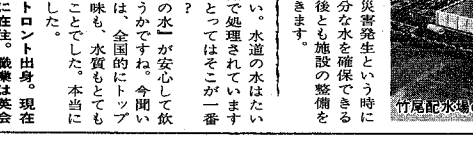 災害発生という時に
分な水を確保できる
後とも施設の整備を
きます。
竹尾配水場
い。水道の水はたい
で処理されています
とってはそこが一番
?
の水』が安心して飲
うかですね。今聞い
は、全国的にトップ
味も、水質もとても
ことでした。本当に
した。
トロント出身。現在
に在住。職業は英会